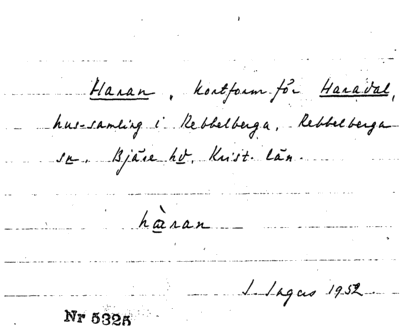 Haran, kortform för Haradal,
hus-samling i Rebbelberga, Rebbelberga
sn. Bjäre hd. Krist. län.
hàran
I. Ingers 1952
Nr 5325